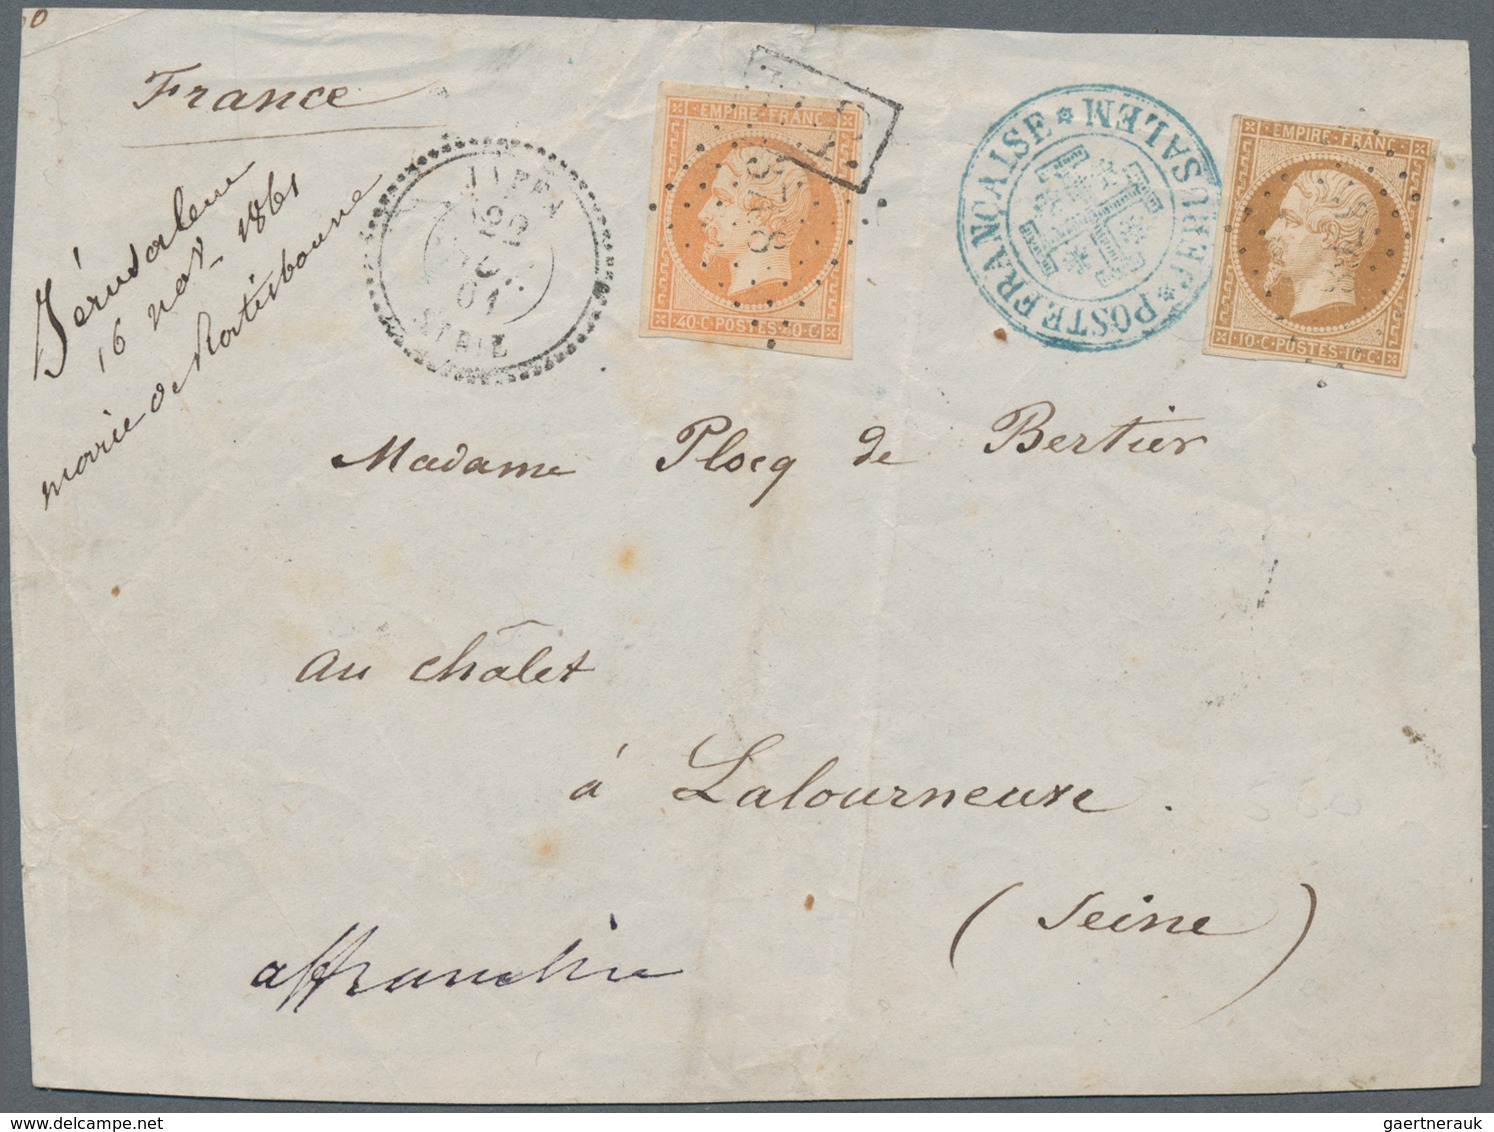 France
Jérusalem
16 nov. 1861
marie de Ratisbonne
JAFFA
22
NOV.
61
SYRIE
EMPIRE · FRANC ·
3768
40 · C · POSTES · 40 · C ·
P.P.
* POSTE FRANÇAISE * JERUSALEM
EMPIRE · FRANC ·
10 · C · POSTES · 10 · C ·
Madame Plocq de Bertier
au châlet
à Latourneuxe .
( Seine )
affranchie
gaertnerauk